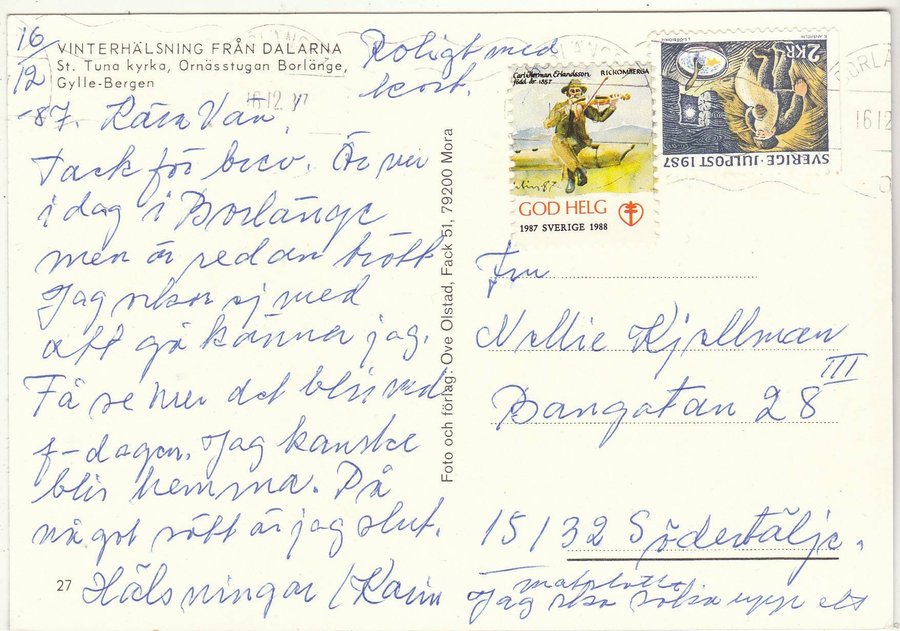 16/12
-87.
VINTERHÄLSNING FRÅN DALARNA
St. Tuna kyrka, Ornässtugan Borlänge,
Gylle-Bergen
Roligt med
kort.
Kära Vän,
Tack för brev. Är nu
i dag i Borlänge
men är redan trött
Jag orkar ej med
att gå känner jag.
Få se hur det blir med
f-dagen. Jag kanske
blir hemma. På
något sätt är jag slut.
27
Hälsningar / Karin
Foto och förlag: Ove Olstad, Fack 51, 79200 Mora
Carl Herman Erlandsson,
född år 1857
RICKOMBERGA
GOD HELG
1987 SVERIGE 1988
2 KR
SVERIGE · JULPOST 1987
16.12
BORLÄ
1612
Fru
Nellie Kjellman
Bangatan 28 III
15132 Södertälje.
Jag ska söka upp ett